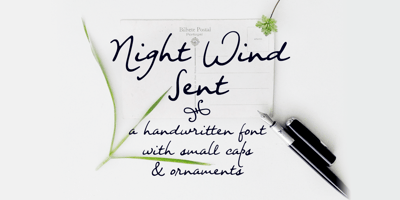 Night Wind
Sent
a handwritten font
with small caps
& ornaments